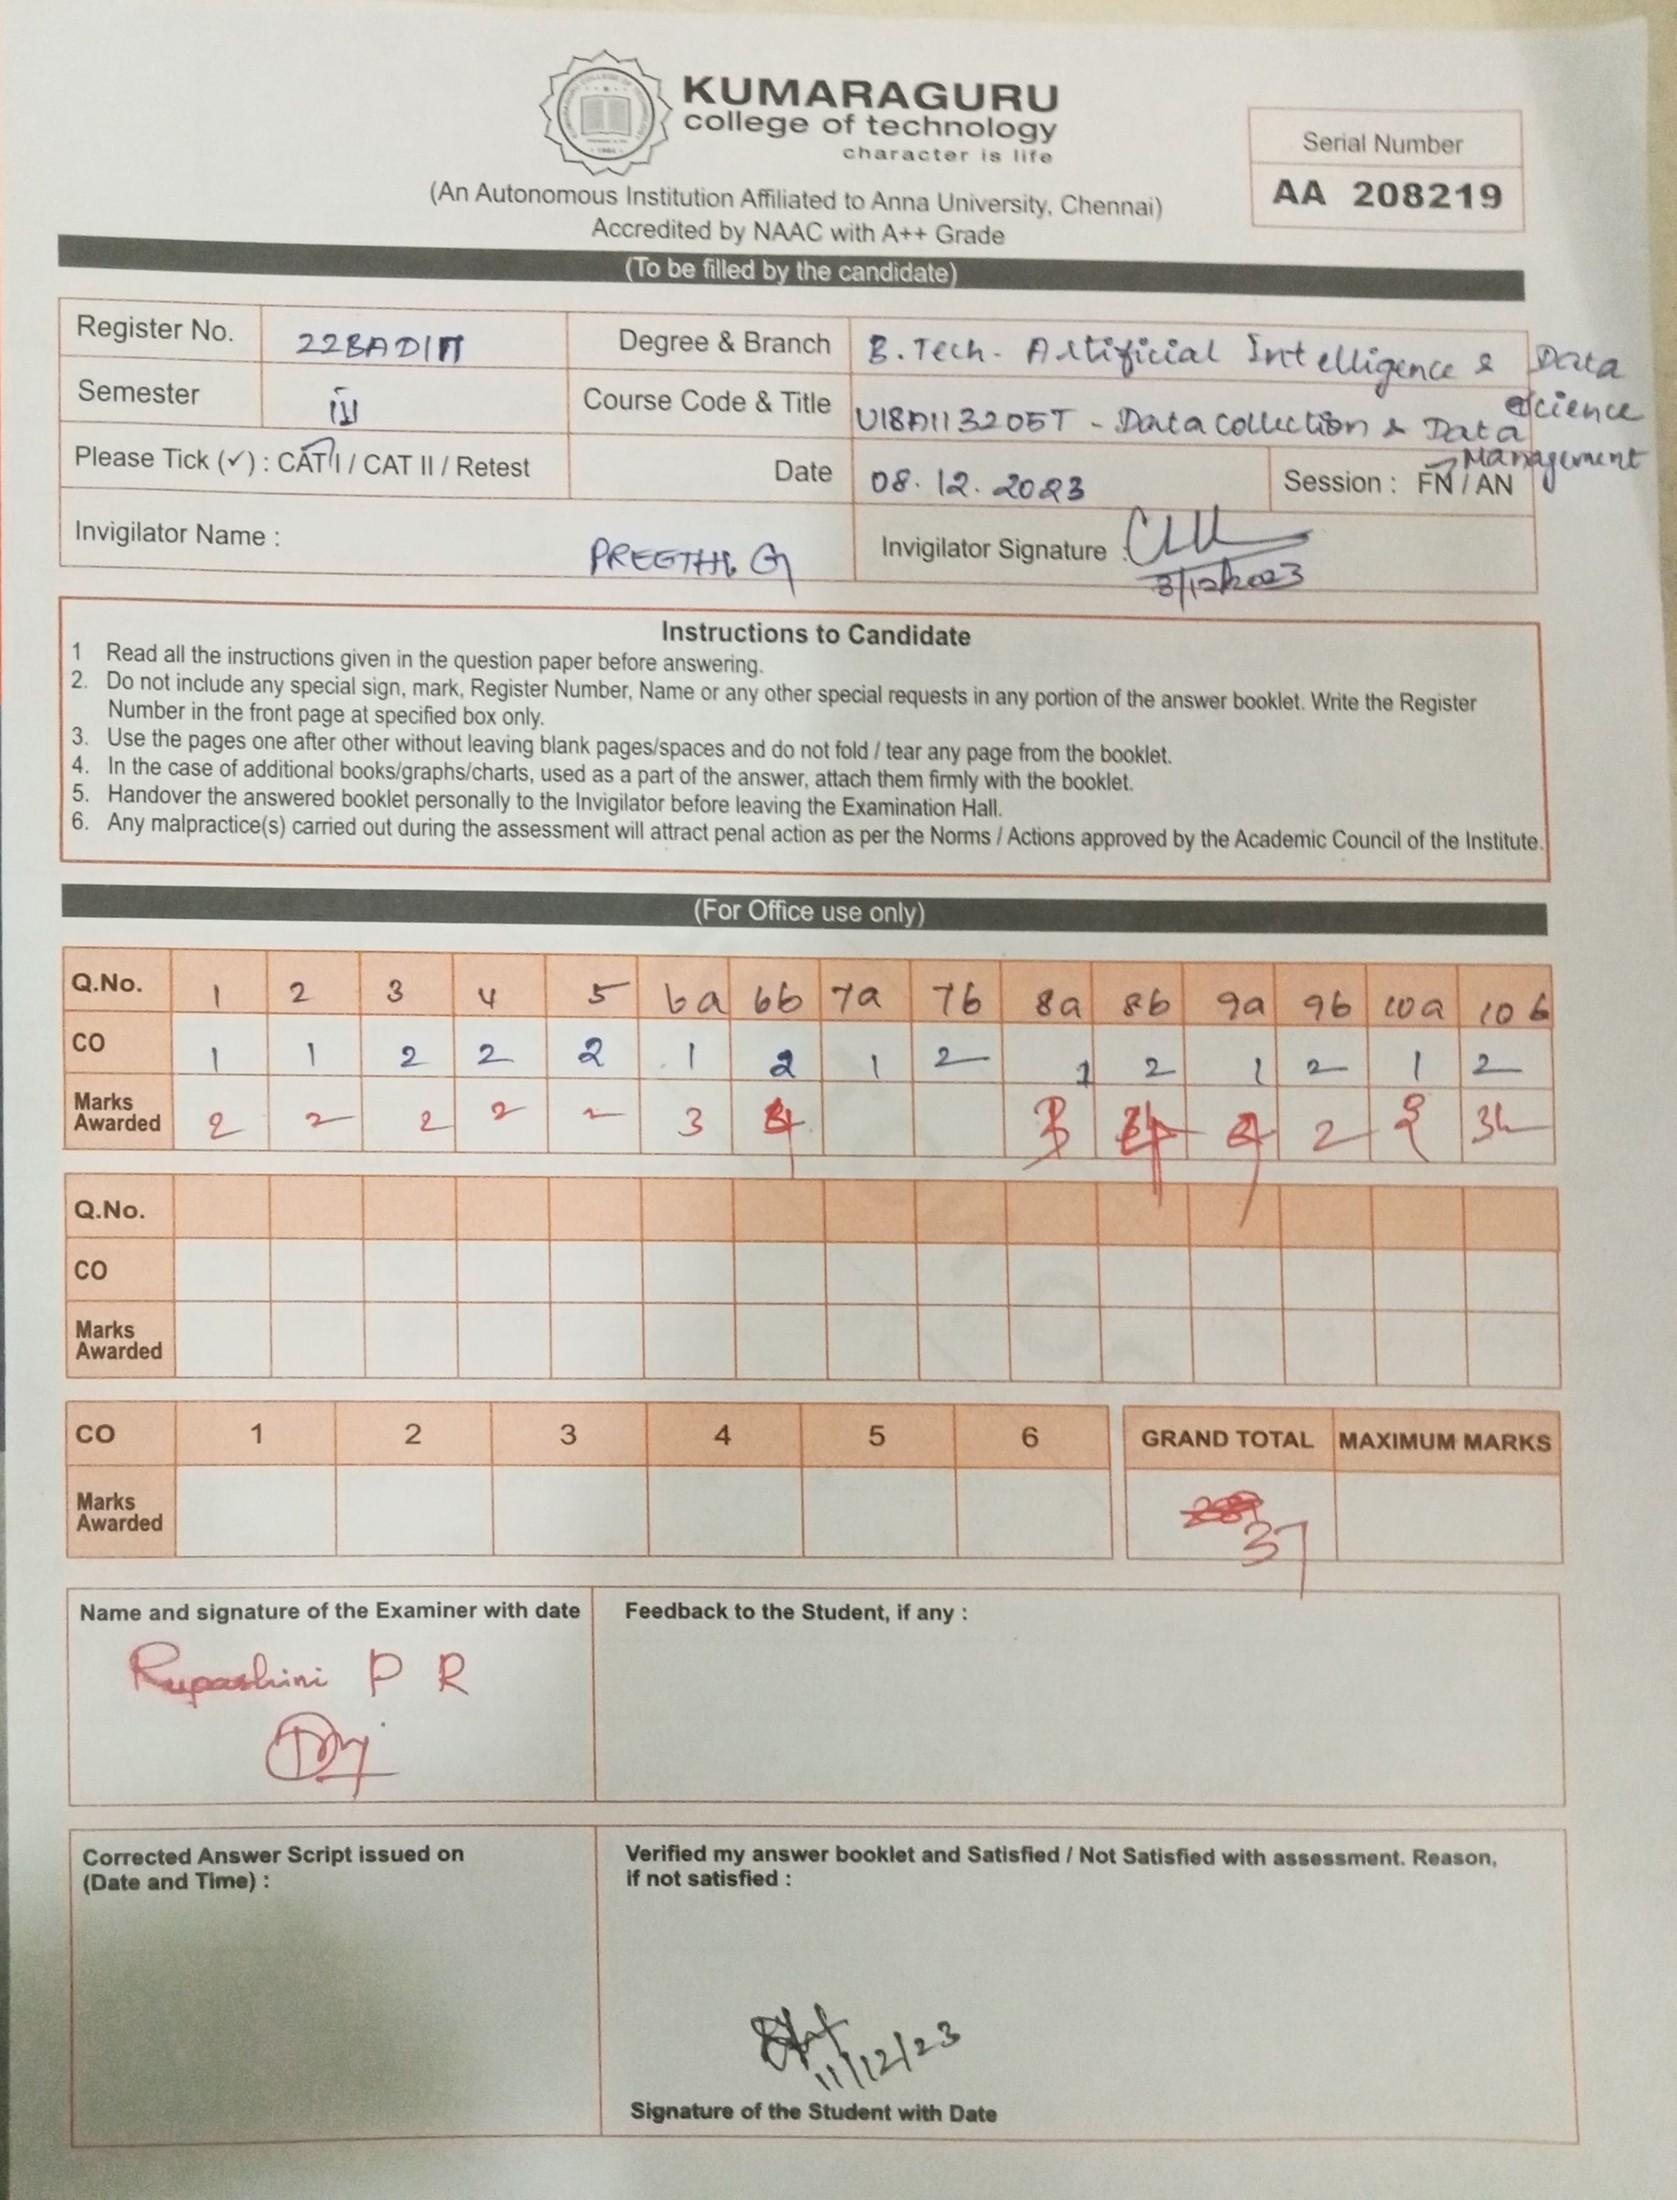 KUMARAGURU
college of technology
character is life
(An Autonomous Institution Affiliated to Anna University, Chennai)
Accredited by NAAC with A++ Grade
Serial Number
AA 208219
(To be filled by the candidate)
Register No.
Degree & Branch B.Tech - Artificial Intelligence & Data Science
Semester III
Course Code & Title - Data Collection & Data Management
Please Tick (✓) : CAT I / CAT II / Retest
Date 08.12.2023
Session : FN / AN
Invigilator Name : PREETHI. G
Invigilator Signature :
Instructions to Candidate
1 Read all the instructions given in the question paper before answering.
2. Do not include any special sign, mark, Register Number, Name or any other special requests in any portion of the answer booklet. Write the Register
Number in the front page at specified box only.
3. Use the pages one after other without leaving blank pages/spaces and do not fold / tear any page from the booklet.
4. In the case of additional books/graphs/charts, used as a part of the answer, attach them firmly with the booklet.
5. Handover the answered booklet personally to the Invigilator before leaving the Examination Hall.
6. Any malpractice(s) carried out during the assessment will attract penal action as per the Norms / Actions approved by the Academic Council of the Institute.
(For Office use only)
Q.No. 1 2 3 4 5 6a 6b 7a 7b 8a 8b 9a 9b 10a 10b
CO 1 1 2 2 2 1 2 1 2 1 2 1 2 1 2
Marks
Awarded 2 2 2 2 2 3 2
Q.No.
CO
Marks
Awarded
CO 1 2 3 4 5 6
GRAND TOTAL MAXIMUM MARKS
Marks
Awarded
37
Name and signature of the Examiner with date
Rupashini P R
Feedback to the Student, if any :
Corrected Answer Script issued on
(Date and Time) :
Verified my answer booklet and Satisfied / Not Satisfied with assessment. Reason,
if not satisfied :
11/12/23
Signature of the Student with Date